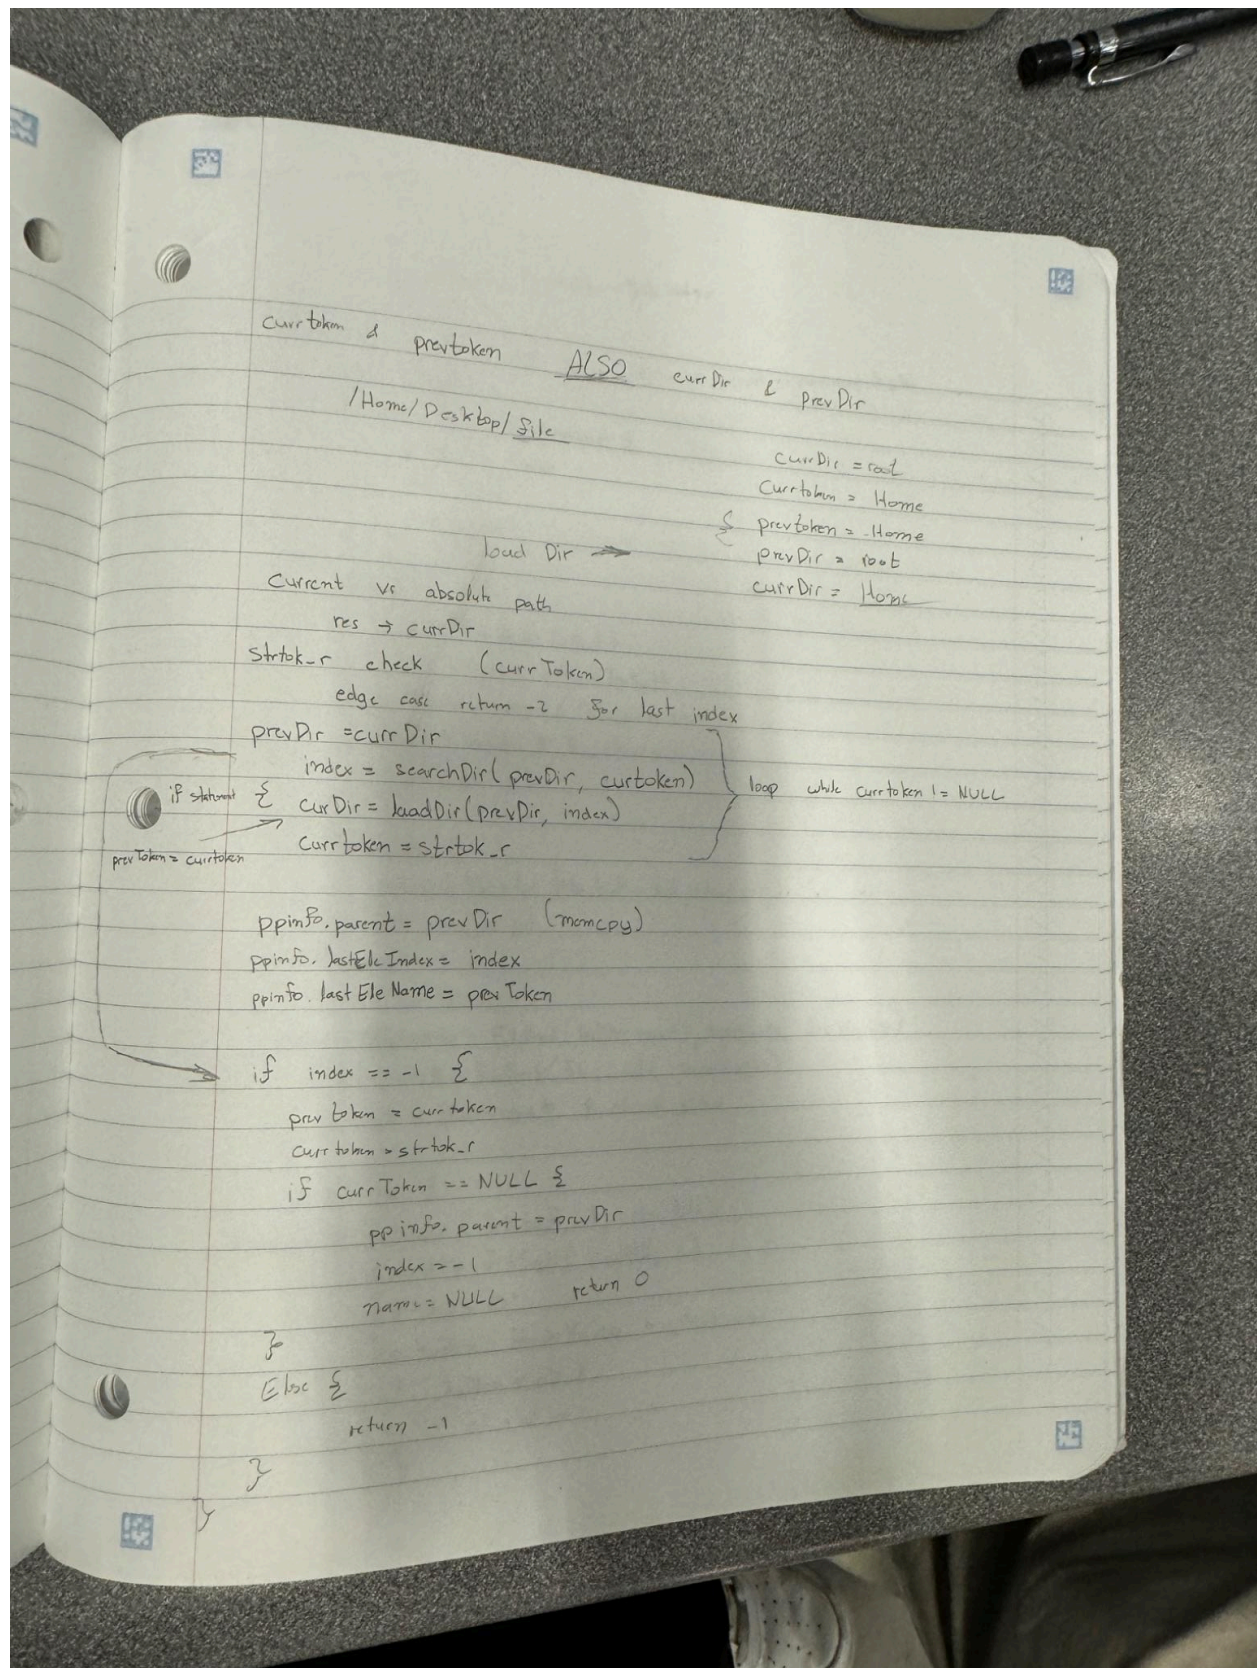 curr token & prevtoken ALSO currDir & prevDir
/Home/Desktop/file
currDir = root
Currtoken = Home
{ prevtoken = Home
load Dir → prevDir = root
currDir = Home
Current vs absolute path
res → currDir
strtok_r check (currToken)
edge case return -2 for last index
prevDir = currDir
index = searchDir(prevDir, curtoken)
if statment { curDir = loadDir(prevDir, index) loop while currtoken != NULL
prevToken = currtoken
currtoken = strtok_r
ppinfo.parent = prevDir (memcpy)
ppinfo.lastEleIndex = index
ppinfo.lastEleName = prevToken
if index == -1 {
prevtoken = currtoken
currtoken = strtok_r
if currToken == NULL {
ppinfo.parent = prevDir
index = -1
name = NULL return 0
}
Else {
return -1
}
}